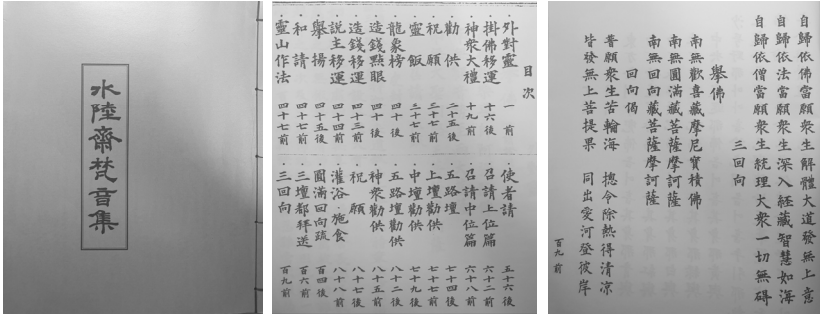 水陸齋梵音集
目次
外對靈 一前
掛佛移運 十六後
神衆大禮 十九前
勸供 二十五後
祝願 二十七前
靈飯 三十七前
龍象榜 四十後
造錢點眼 四十後
造錢移運 四十三前
說主移運 四十四前
舉揚 四十五後
和請 四十七前
靈山作法 四十七前
使者請 五十六後
召請上位篇 六十二前
召請中位篇 六十八前
五路壇 七十四後
上壇勸供 七十七前
中壇勸供 七十九後
五路壇勸供 八十二後
神衆勸供 八十五前
祝願 八十七前
灌浴·施食 八十八前
圓滿回向疏 百四後
三壇都拜送 百六前
三回向 百九前
自歸依佛當願衆生解體大道發無上意
自歸依法當願衆生深入経藏智慧如海
自歸依僧當願衆生統理大衆一切無碍
三回向
舉佛
南無歡喜藏摩尼寶積佛
南無圓滿藏菩薩摩訶薩
南無回向藏菩薩摩訶薩
回向偈
普願衆生苦輪海 摠令除熱得清凉
皆發無上菩提果 同出愛河登彼岸
百九前